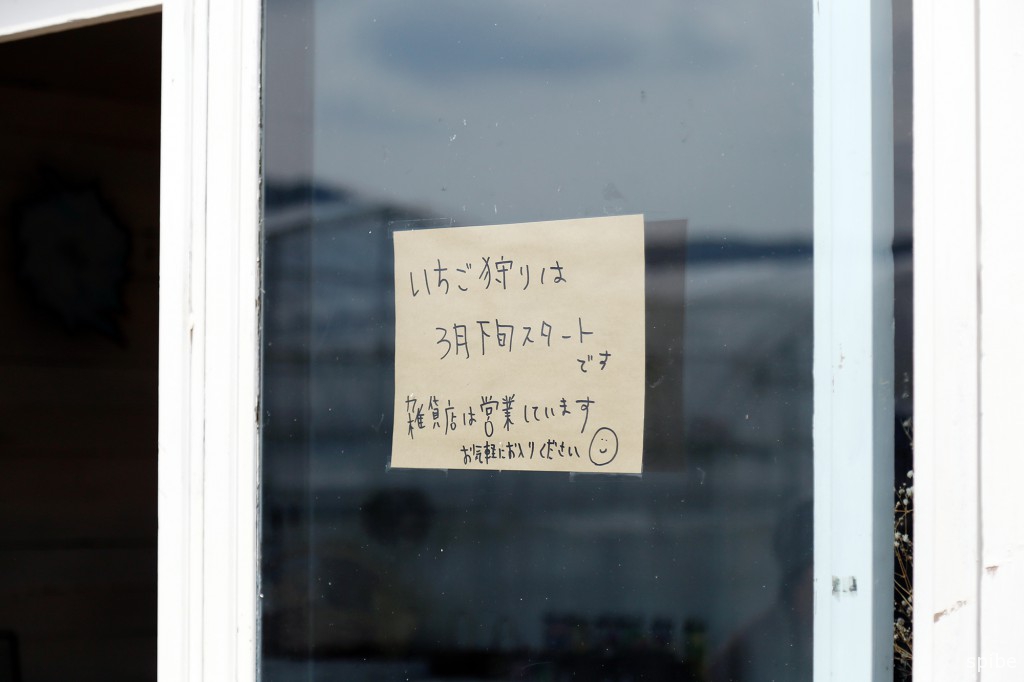 いちご狩りは
3月下旬スタート
です
雑貨店は営業しています
お気軽にお入りください
spibe